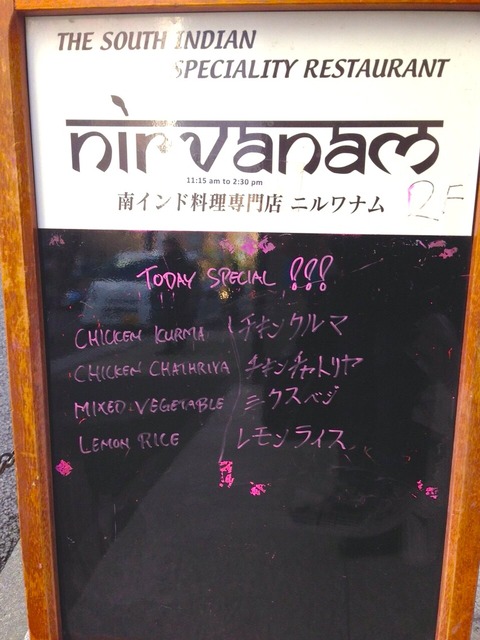 THE SOUTH INDIAN
SPECIALITY RESTAURANT
nirvanam
11:15 am to 2:30 pm
南インド料理専門店 ニルワナム
2F
TODAY SPECIAL !!!
CHICKEN KURMA チキンクルマ
CHICKEN CHATHRIYA チキンチャトリヤ
MIXED VEGETABLE ミークスベジ
LEMON RICE レモンライス